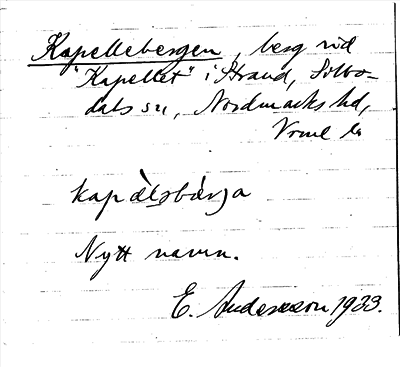 Kapellebergen, berg vid
"Kapellet" i Strand, Silbo-
dals sn, Nordmarks hd,
Vrml
kap
Nytt namn.
E. Andersson 1933.